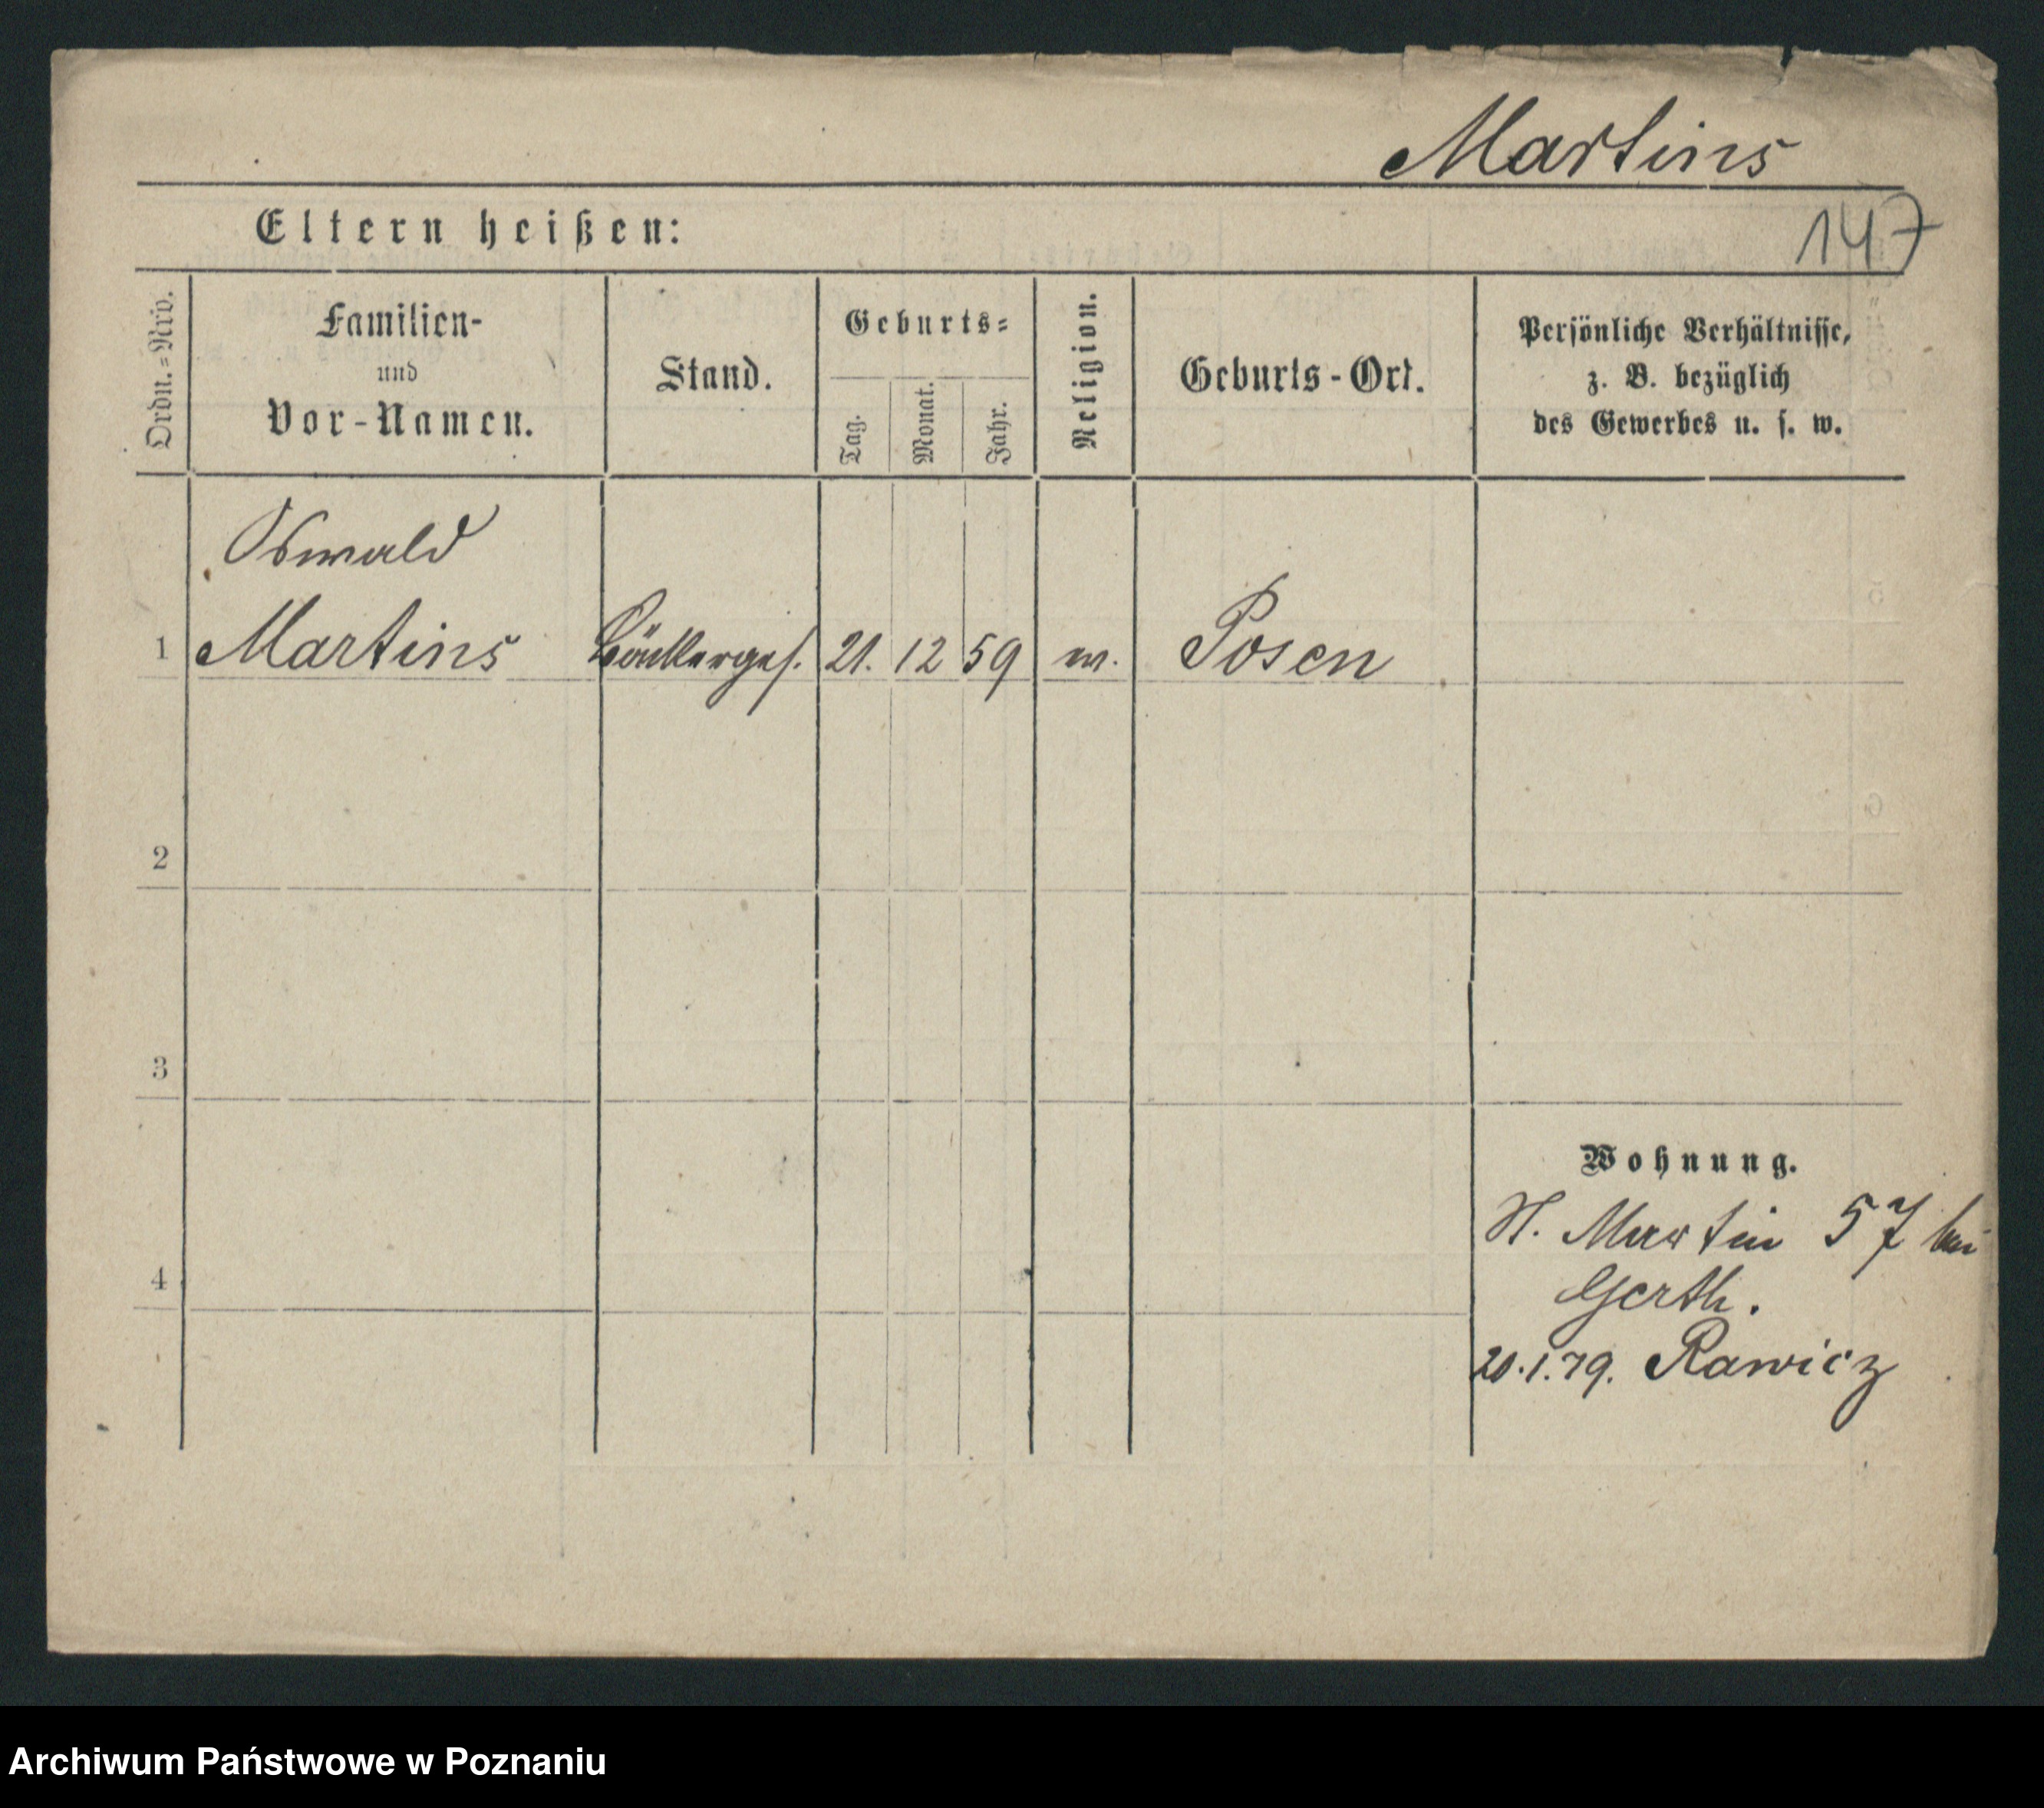 Martins
147
Eltern heißen:
Ordn.=Nro.
Familien-
und
Vor-Namen.
Stand.
Geburts=
Tag.
Monat.
Jahr.
Religion.
Geburts-Ort.
Persönliche Verhältnisse,
z. B. bezüglich
des Gewerbes u. s. w.
Oswald
1 Martins Bäckerges. 21. 12 59 ev. Posen
2
3
Wohnung.
St. Martin 57 bei
4
Gerth.
20.1.79. Rawicz
Archiwum Państwowe w Poznaniu